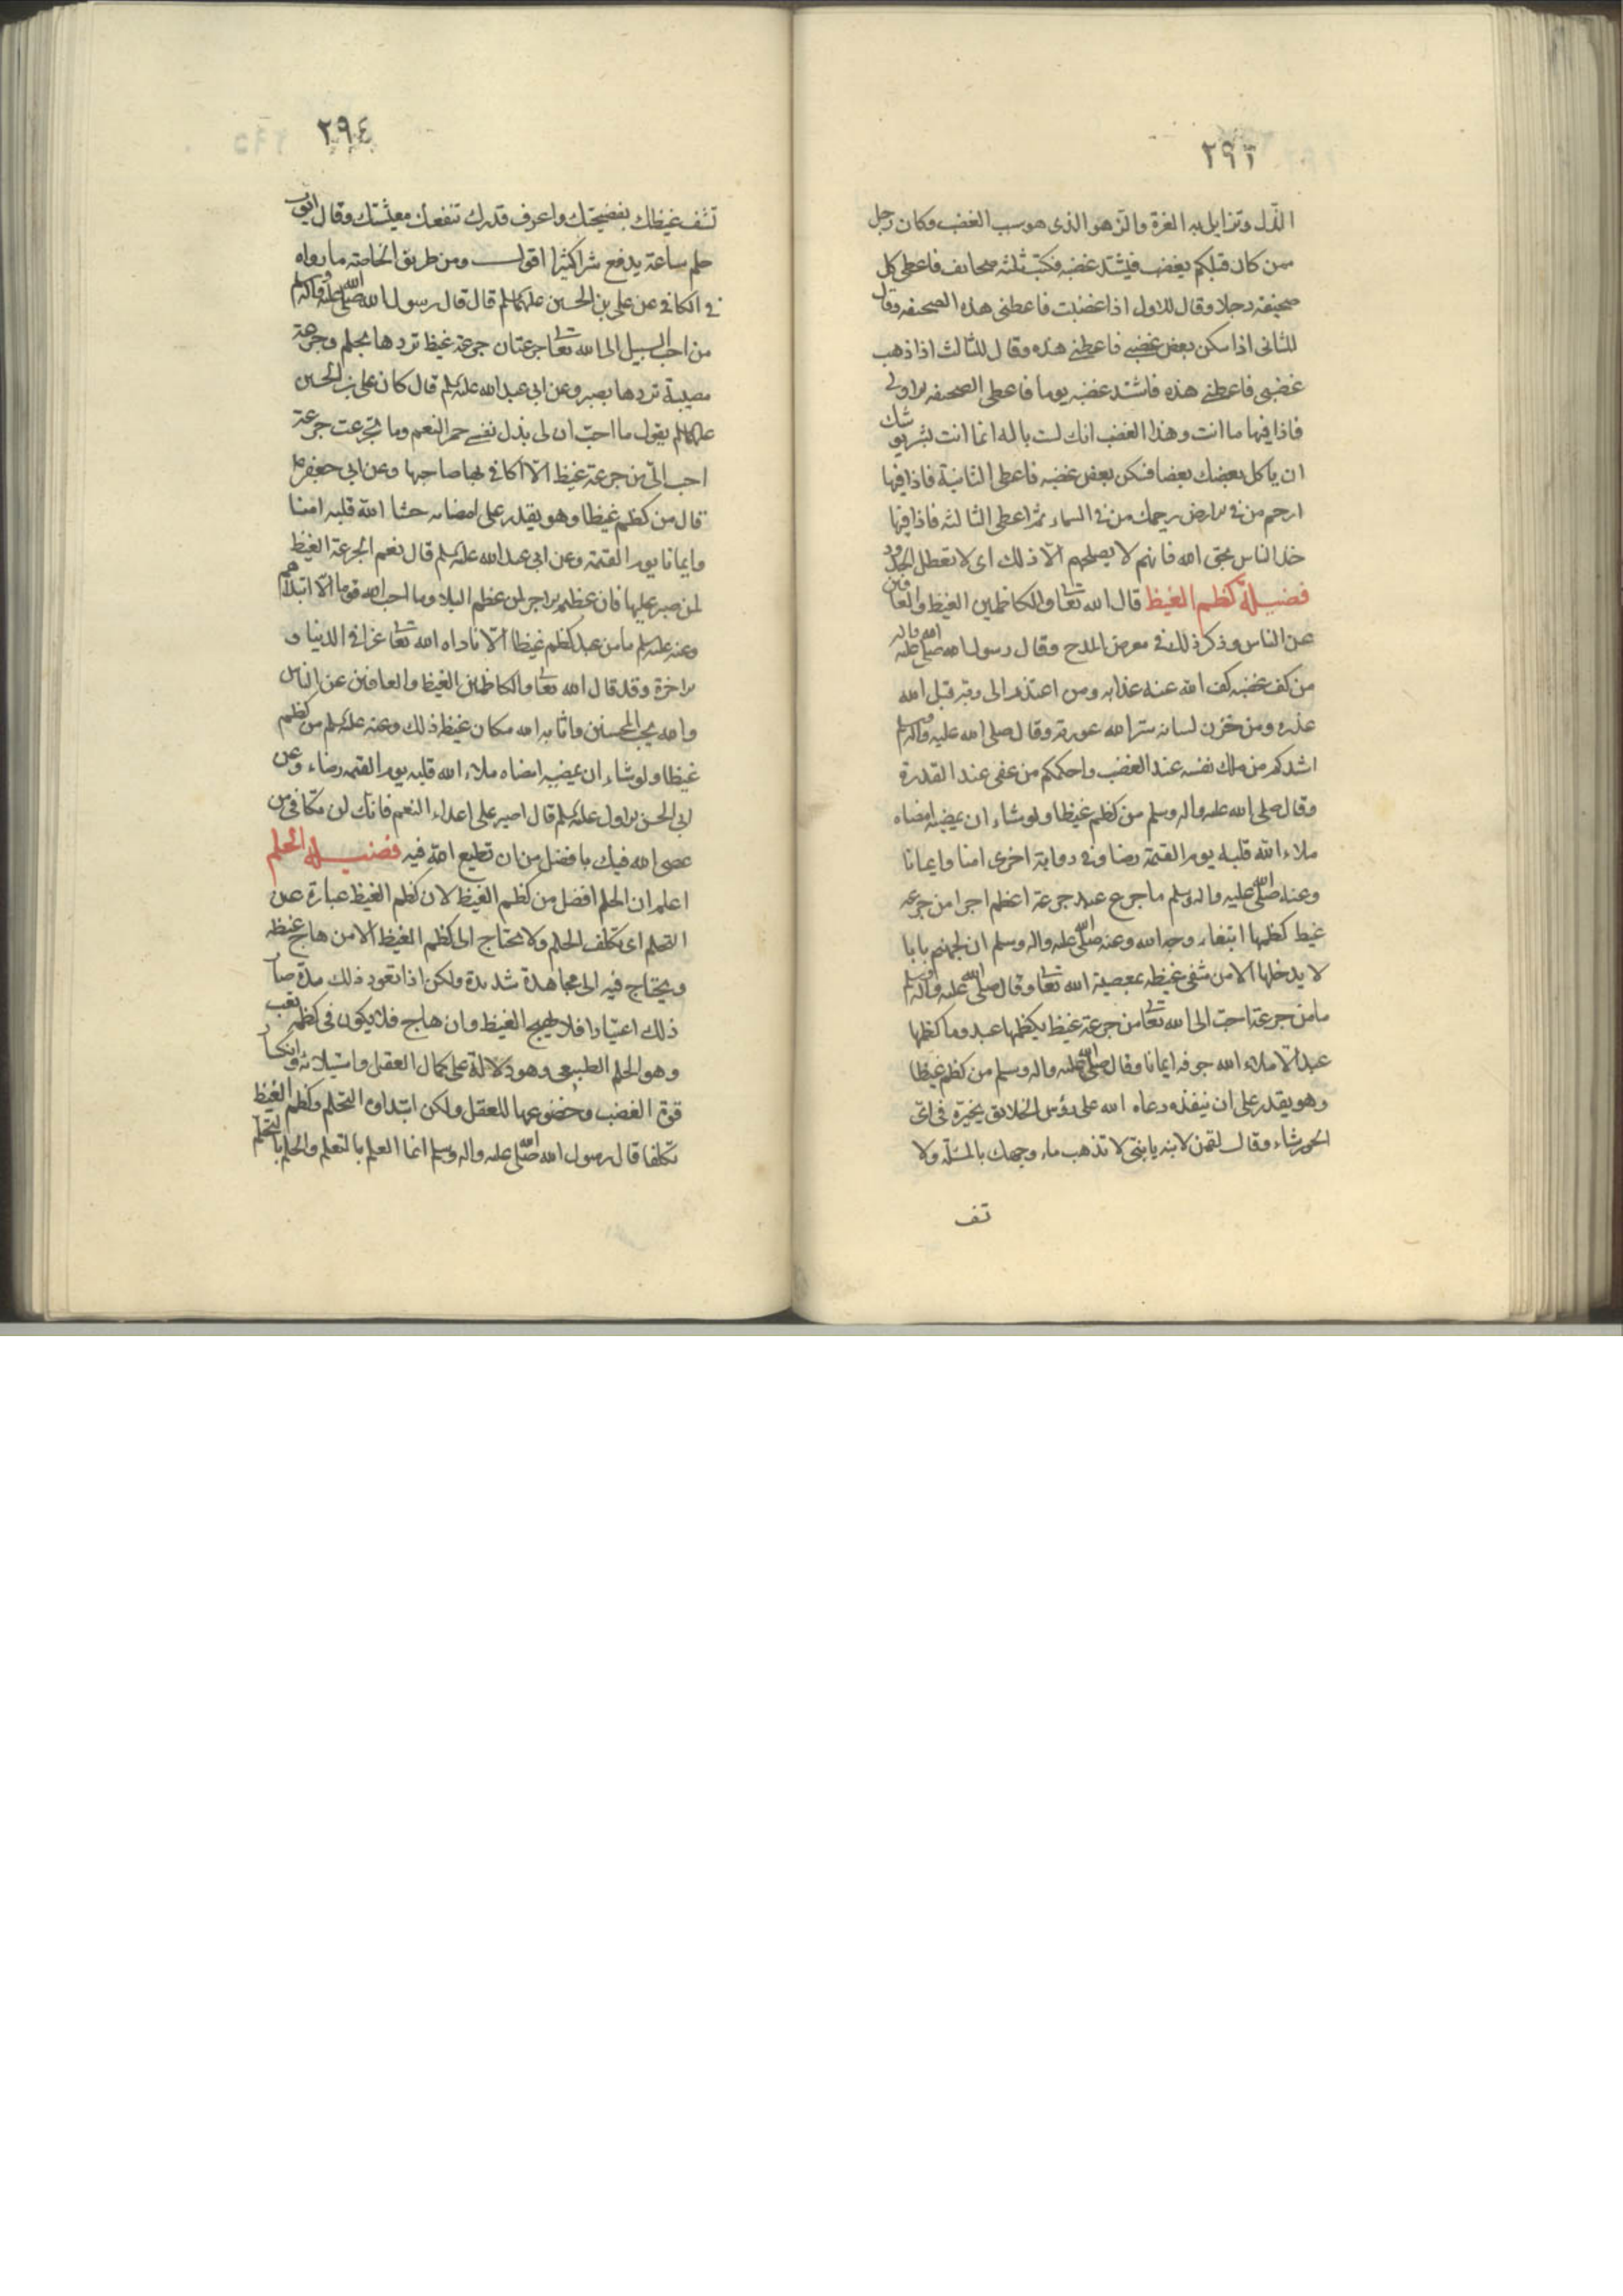 ٢٩٣
الذل وتزايل به العزة والزهو الذى هو سبب الغضب وكان رجل
ممن كان قبلكم يغضب فيشتد غضبه فكتب ثلثه صحايف فاعطى كل
صحيفه رجلا وقال للاول اذا غضبت فاعطنى هذه الصحيفه وقال
للثانى اذا سكن بعض غضبى فاعطنى هذه وقال للثالث اذا ذهب
غضبى فاعطنى هذه فاشتد غضبه يوما فاعطى الصحيفه الاولى
فاذا فيها ما انت وهذا الغضب انك لست باله انما انت بشر يوشك
ان ياكل بعضك بعضا فسكن بعض غضبه فاعطى الثانية فاذا فيها
ارحم من فى الارض يرحمك من فى السماء ثم اعطى الثالثه فاذا فيها
خذ الناس بحق الله فانهم لا يصلحهم الا ذلك اى لا تعطل الحدود
فضيلة كظم الغيظ قال الله تعا والكاظمين الغيظ والعافين
عن الناس وذكر ذلك فى معرض المدح وقال رسول الله صلى الله عليه واله
من كف غضبه كف الله عنه عذابه ومن اعتذر الى ربه قبل الله
عذره ومن خزن لسانه ستر الله عورته وقال صلى الله عليه واله وسلم
اشدكم من ملك نفسه عند الغضب واحكمكم من عفى عند القدرة
وقال صلى الله عليه واله وسلم من كظم غيظا ولو شاء ان يمضيه امضاه
ملاء الله قلبه يوم القيمة رضا وفى رواية اخرى امنا وايمانا
وعنه صلى الله عليه واله وسلم ما جرع عبد جرعة اعظم اجرا من جرعه
غيظ كظمها ابتغاء وجه الله وعنه صلى الله عليه واله وسلم ان لجهنم بابا
لا يدخلها الا من شفى غيظه بمعصية الله تعا وقال صلى الله عليه واله وسلم
ما من جرعة احب الى الله تعا من جرعة غيظ يكظمها عبد وما كظمها
عبد الا ملاء الله جوفه ايمانا وقال صلى الله عليه واله وسلم من كظم غيظا
وهو يقدر على ان ينفذه دعاه الله على رؤس الخلايق يخيره فى اى
الحور شاء وقال لقمن لابنه يا بنى لا تذهب ماء وجهك بالمسئلة ولا
تف
٢٩٤
تشف غيظك بفضيحتك واعرف قدرك تنفعك معيشتك وقال ايوب
حلم ساعة يدفع شرا كثيرا اقول ومن طريق الخاصه ما رواه
فى الكافى عن على بن الحسين عليهما السلم قال قال رسول الله صلى الله عليه واله وسلم
من احب السبيل الى الله تعا جرعتان جرعة غيظ تردها بحلم وجرعة
مصيبة تردها بصبر وعن ابى عبد الله عليه السلم قال كان على بن الحسين
عليهما السلم يقول ما احب ان لى بذل نفسى حمر النعم وما تجرعت جرعة
احب الى من جرعة غيظ الا اكافى بها صاحبها وعن ابى جعفر ع
قال من كظم غيظا وهو يقدر على امضائه حشا الله قلبه امنا
وايمانا يوم القيمة وعن ابى عبد الله عليه السلم قال نعم الجرعة الغيظ
لمن صبر عليها فان عظيم الاجر لمن عظم البلا وما احب الله قوما الا ابتلاهم
وعنه عليه السلم ما من عبد كظم غيظا الا زاده الله تعا عزا فى الدنيا و
الاخرة وقد قال الله تعا والكاظمين الغيظ والعافين عن الناس
والله يحب المحسنين واثابه الله مكان غيظه ذلك وعنه عليه السلم من كظم
غيظا ولو شاء ان يمضيه امضاه ملاء الله قلبه يوم القيمه رضاء وعن
ابى الحسن الاول عليه السلم قال اصبر على اعداء النعم فانك لن تكافى من
عصى الله فيك بافضل من ان تطيع الله فيه فضيلة الحلم
اعلم ان الحلم افضل من كظم الغيظ لان كظم الغيظ عبارة عن
التحلم اى تكلف الحلم ولا يحتاج الى كظم الغيظ الا من هاج غيظه
ويحتاج فيه الى مجاهدة شديدة ولكن اذا تعود ذلك مدة صار
ذلك اعتيادا فلا يهيج الغيظ وان هاج فلا يكون فى كظمه تعب
وهو الحلم الطبيعى وهو دلالة على كمال العقل واستيلائه وانكسار
قوة الغضب وخضوعها للعقل ولكن ابتداوه التحلم وكظم الغيظ
تكلفا قال رسول الله صلى الله عليه واله وسلم انما العلم بالتعلم والحلم بالتحلم